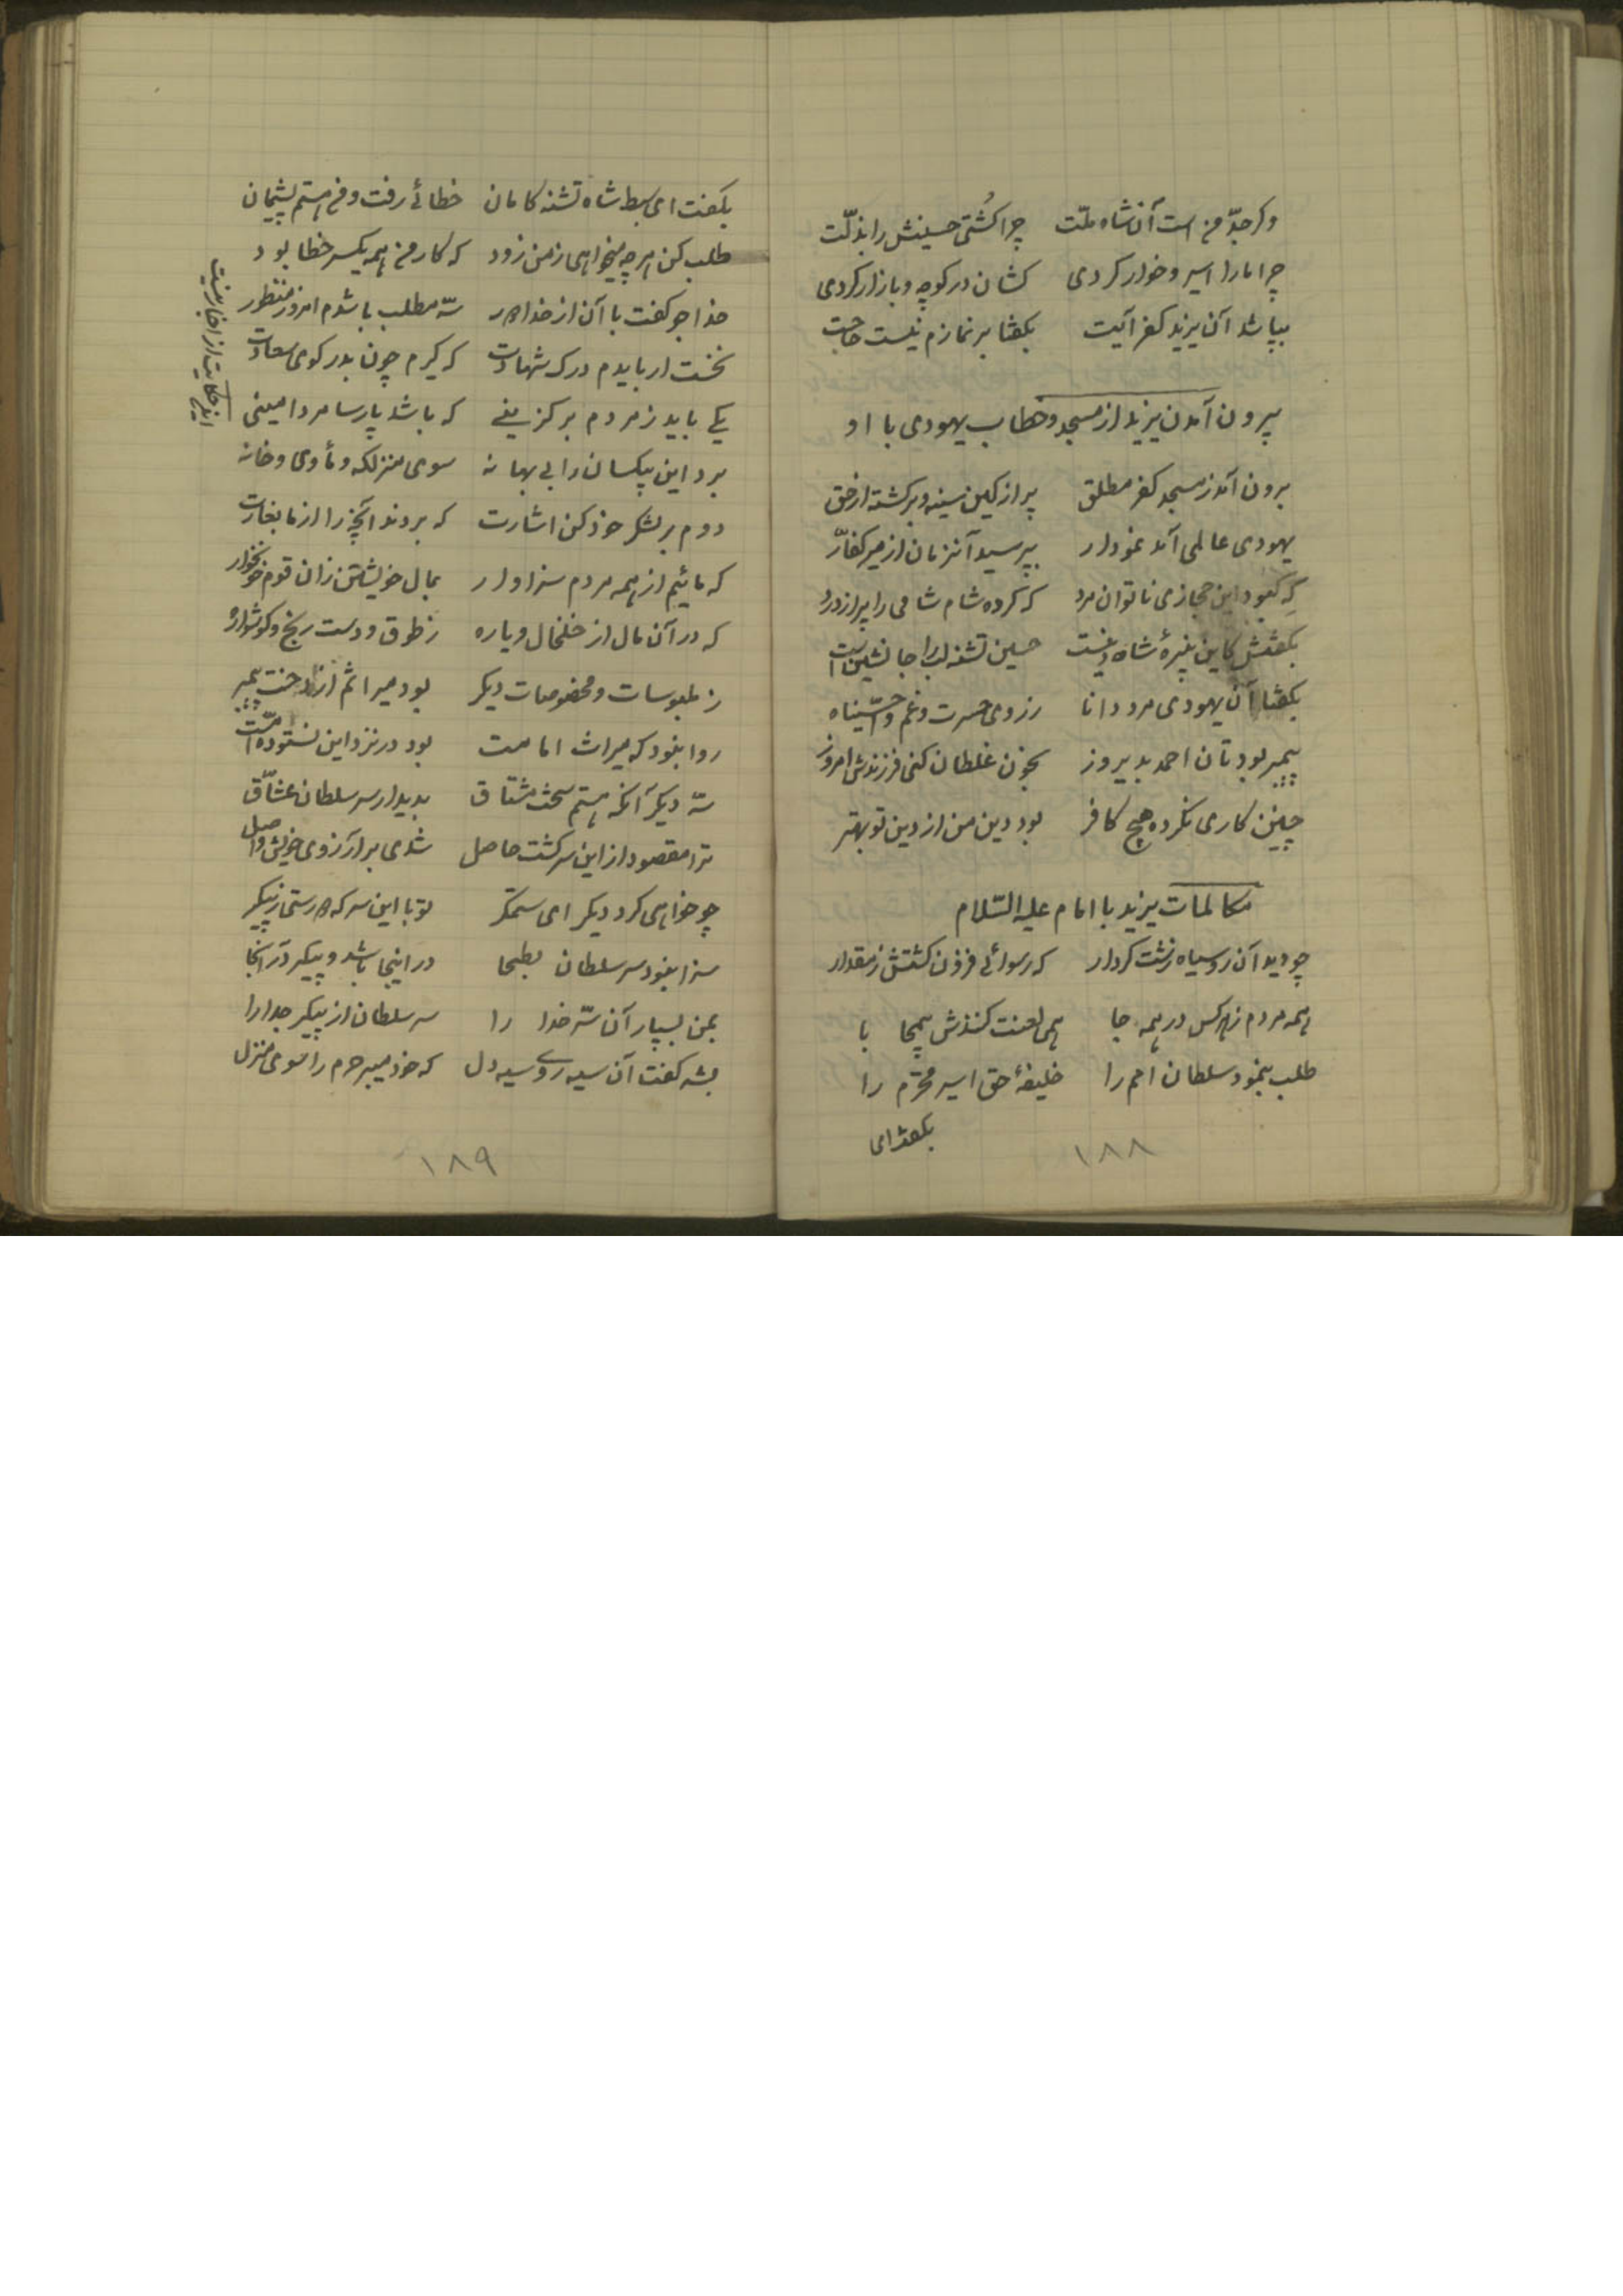 وگر جدّ من است آن شاه ملّت چرا کُشتی حسینش را بذلّت
چرا ما را اسیر و خوار کردی کشان در کوچه و بازار کردی
بپا شد آن یزید کفر آیت بگفتا بر نمازم نیست حاجت
بیرون آمدن یزید از مسجد و خطاب یهودی با او
برون آمد ز مسجد کفر مطلق پر از کین سینه و برگشته از حق
یهودی عالمی آمد نمودار بپرسید آنزمان از میر کفّار
که کبود این حجازی ناتوان مرد که کرده شام شامی را پر از درد
بگفتش کاین نبیرهٔ شاه دینست حسین تشنه لب را جانشین است
بگفتا آن یهودی مرد دانا ز روی حسرت و غم وا حسیناه
پیمبر بودتان احمد بدیروز بخون غلطان کنی فرزندش امروز
چنین کاری نکرده هیچ کافر بود دین من از دین تو بهتر
مکالمات یزید با امام علیه السّلام
چو دید آن رو سیاه زشت کردار که رسوائی فزون گشتش ز مقدار
همه مردم ز هر کس در همه جا همی لعنت کنندش
طلب بنمود سلطان امم را خلیفهٔ حق اسیر محترم را
بگفت ای
۱۸۸
بگفت ای سبط شاه تشنه کامان خطائی رفت و من هستم پشیمان
طلب کن هر چه میخواهی ز من زود که کار من همه یکسر خطا بود
خدا جو گفت با آن از خدا دور سه مطلب باشدم امروز منظور
نخست ار بایدم درک شهادت که گیرم چون پدر کوی سعادت
یکی باید ز مردم بر گزینی که باشد پارسا مرد امینی
برد این بیکسان را بی بهانه سوی منزلگه و مأوی و خانه
دوم بر لشگر خود کن اشارت که بردند آنچه را از ما بغارت
که مائیم از همه مردم سزاوار بمال خویشتن زان قوم خونخوار
که در آن مال از خلخال و یاره ز طوق و دست رنج و گوشواره
ز ملبوسات و مخصوصات دیگر بود میراثم از دخت پیمبر
روا نبود که میراث امامت بود در نزد این نستوده امّت
سه دیگر آنکه هستم سخت مشتاق بدیدار سر سلطان عشّاق
ترا مقصود از این سر گشت حاصل شدی بر آرزوی خویش واصل
چو خواهی کرد دیگر ای ستمگر تو با این سر که دور ستی ز پیکر
سزا نبود سر سلطان بطحا در اینجا باشد و پیکر در آنجا
بمن بسپار آن سرّ خدا را سر سلطان از پیکر جدا را
بشه گفت آن سیه روی سیه دل که خود میبر حرم را سوی منزل
این حکایت از اخبار نیست
۱۸۹